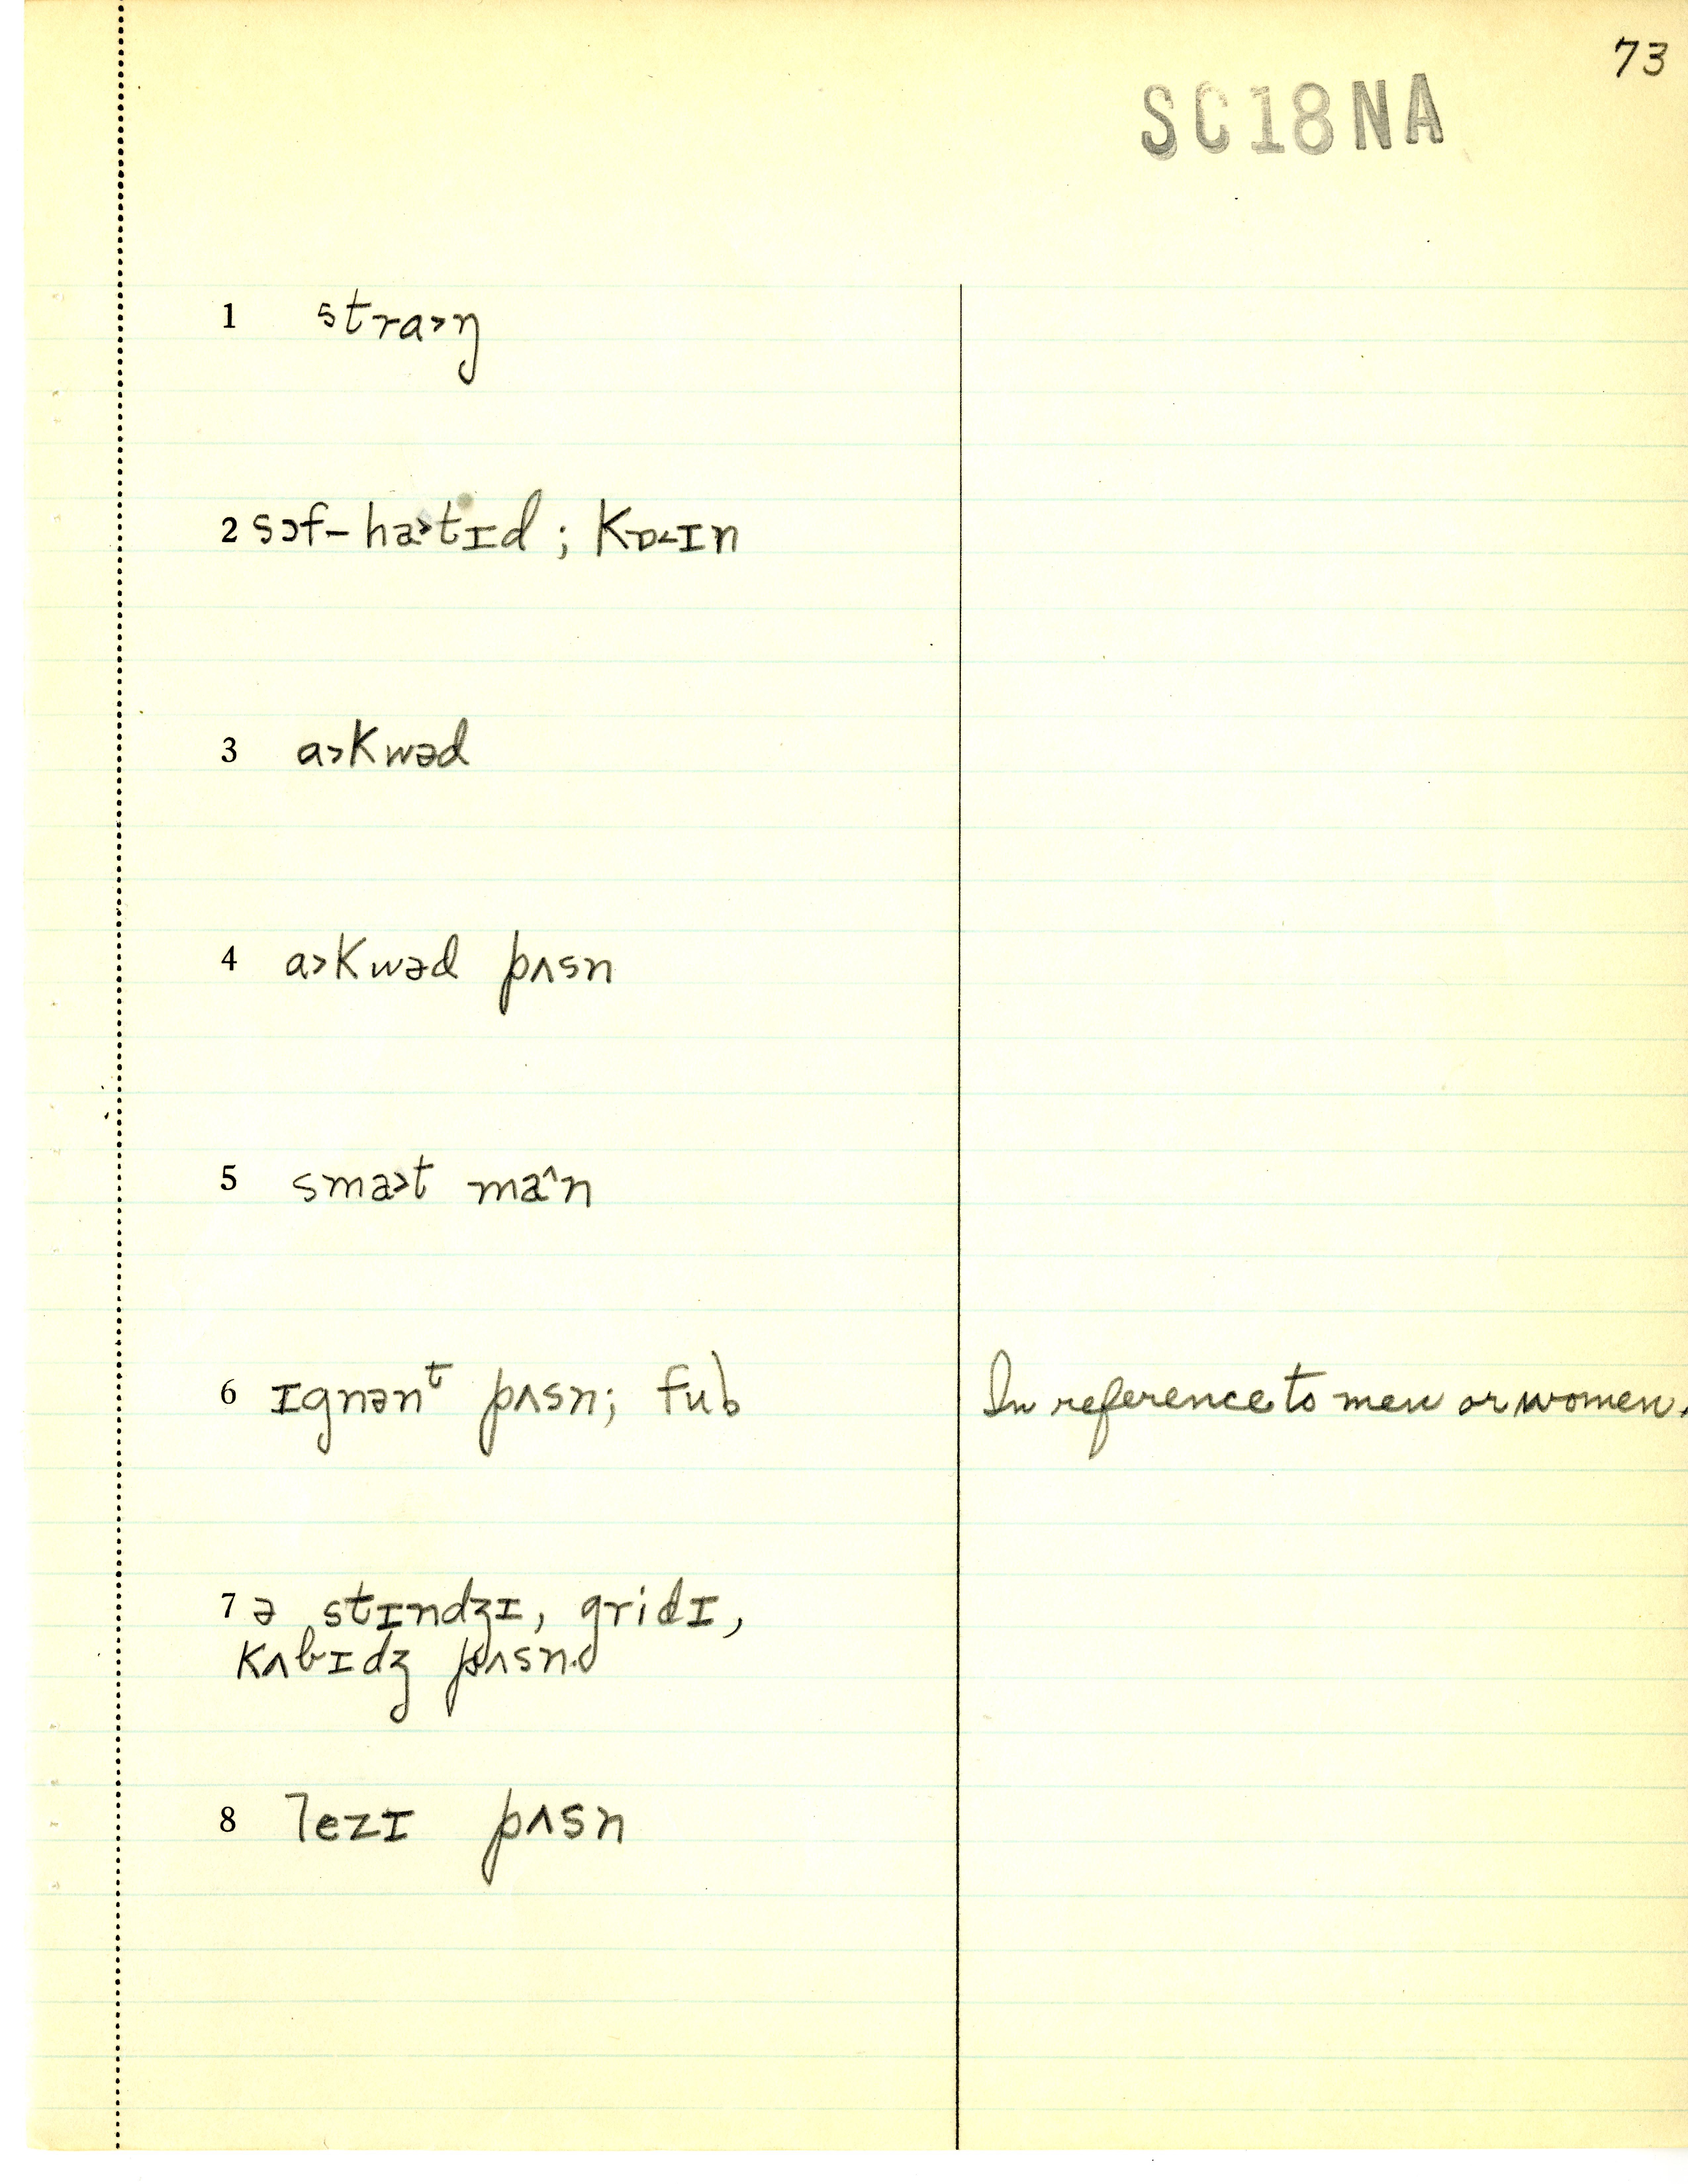 73
SC18NA
1 stra˃ŋ
2 sɔf-ha˃tɪd ; kɒ˂ɪn
3 a˃kwəd
4 a˃kwəd pʌsn
5 sma˃t ma^n
6 ɪgnənᵗ pʌsn; fub In reference to men or women.
7 ə stɪndʒɪ, gridɪ,
kʌbɪdʒ pʌsn.
8 lezɪ pʌsn